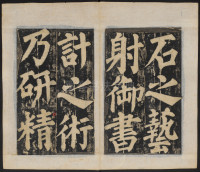 石之藝
射御書
計之術
乃研精